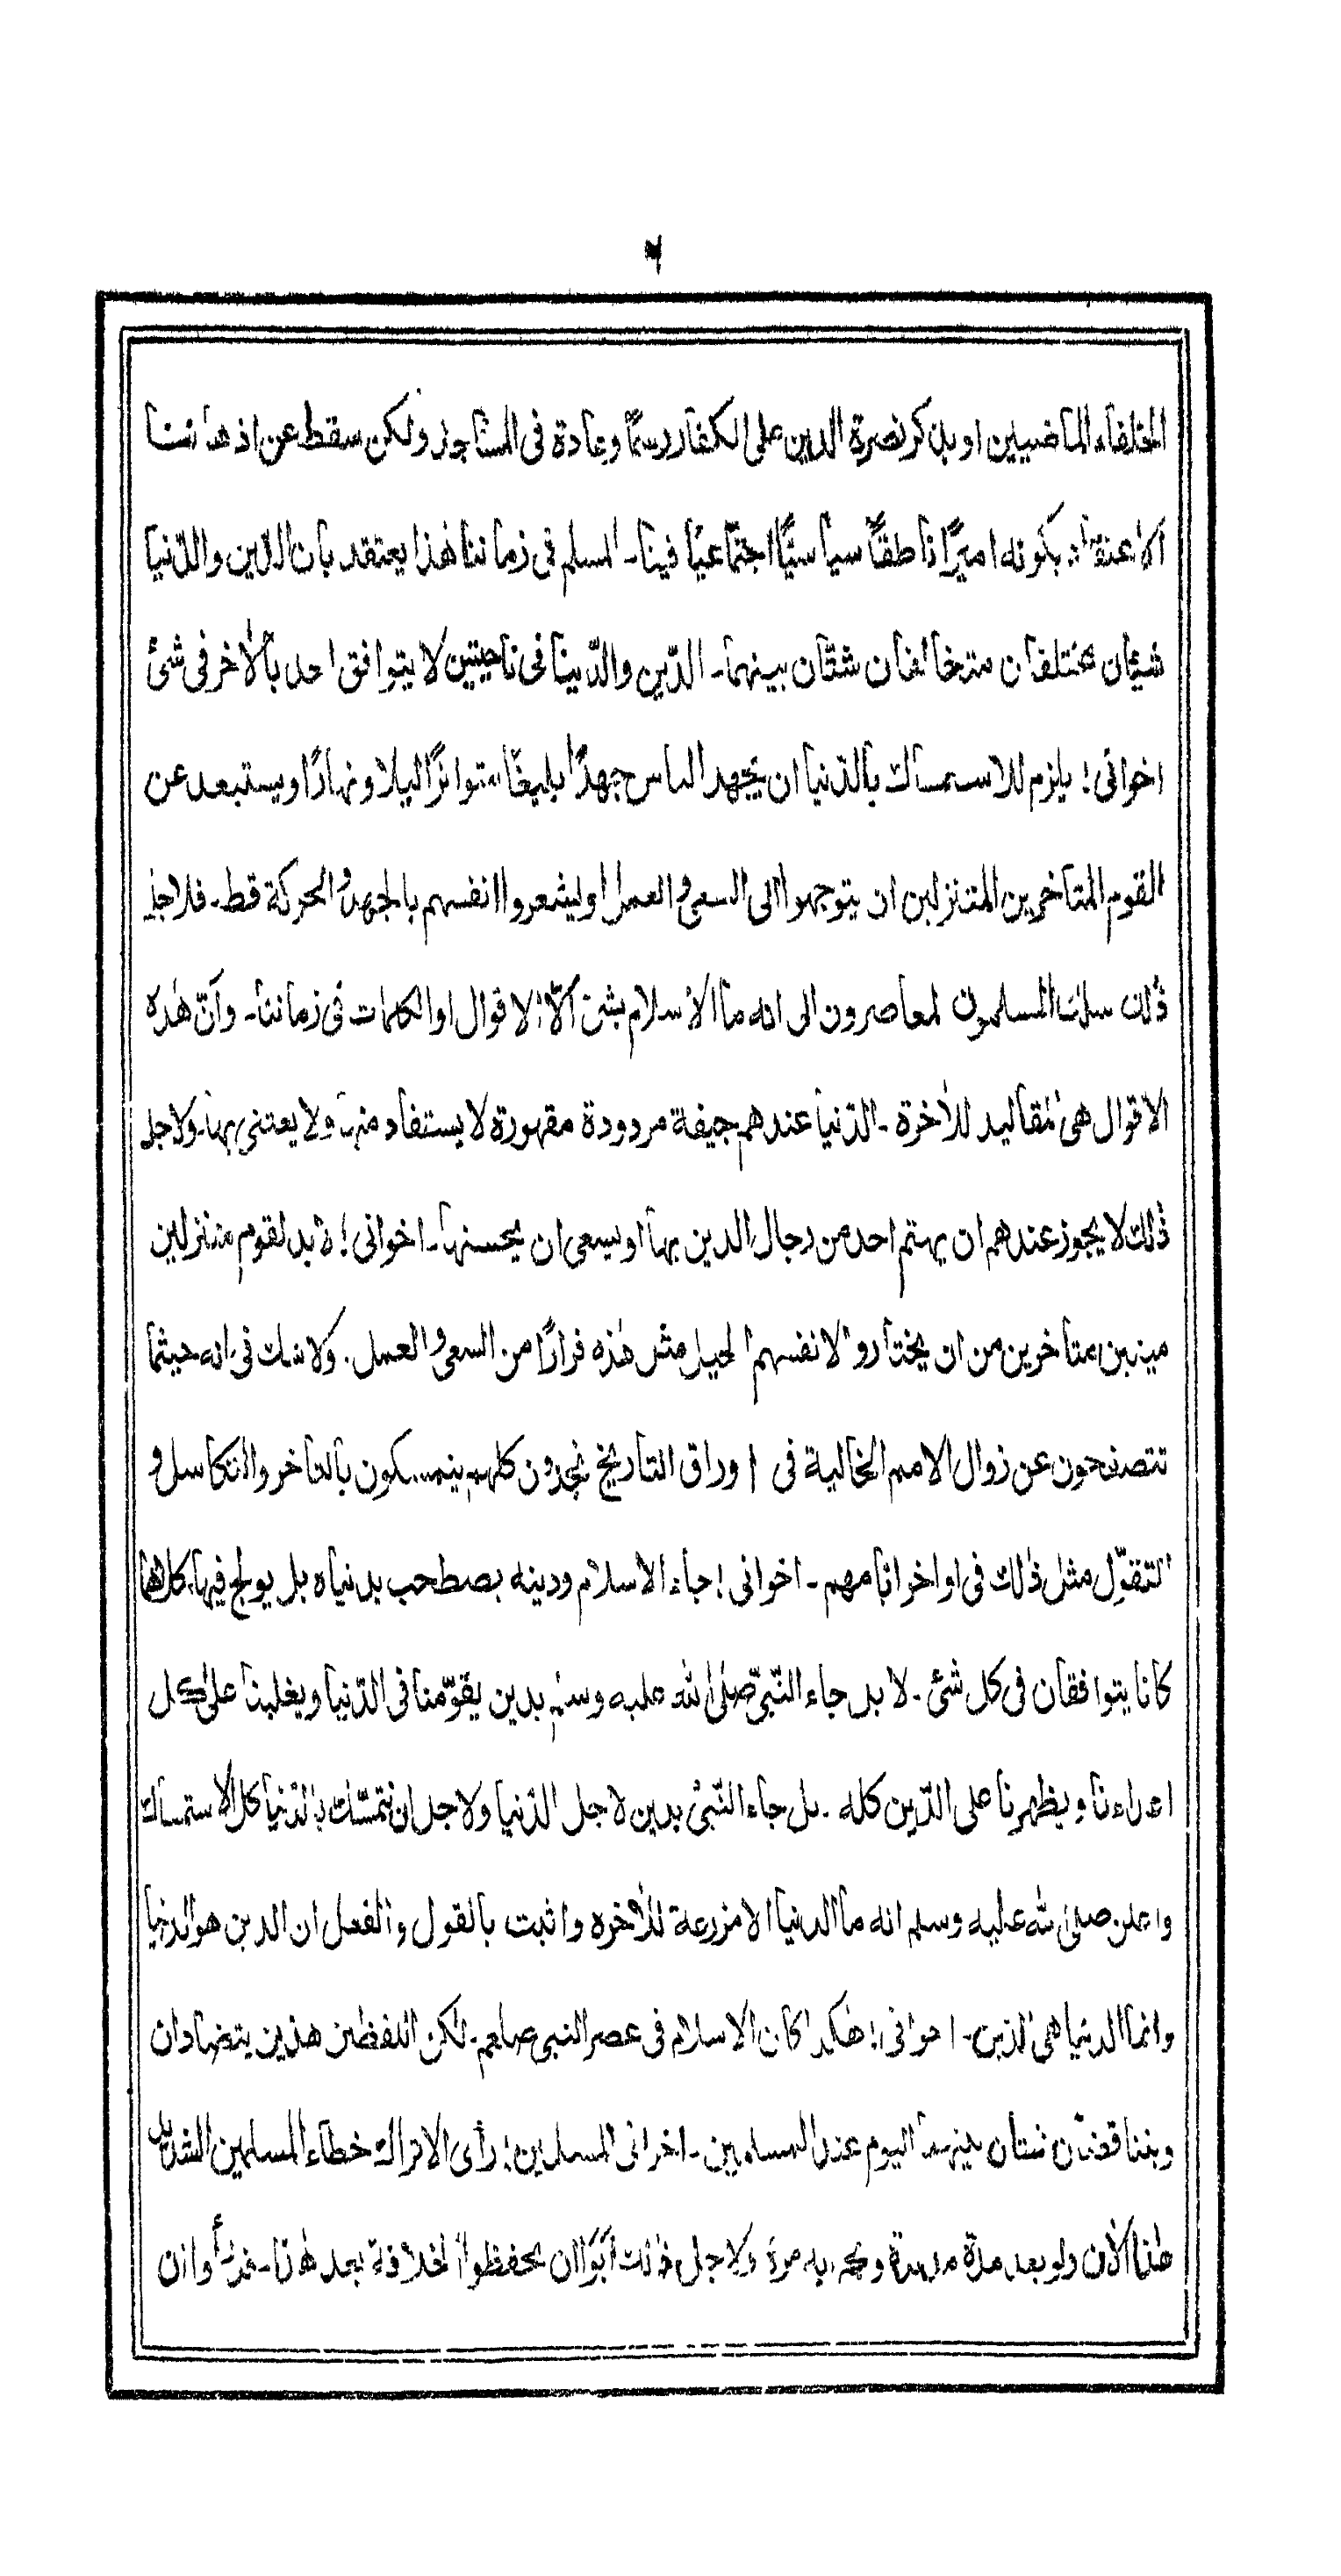 ۶
الخلفاء الماضيين او يذكر نصرة الدين على الكفار رسمًا وعادة فى المساجد ولكن سقط عن اذهاننا
الاعتقاد بكونه اميرًا ناطقًا سياسيًّا اجتماعيًا فينا۔ المسلم فى زماننا هٰذا يعتقد بان الدّين والدّنيا
شيئان مختلفان متخالفان شتّان بينهما۔ الدّين والدّينا فى ناحيتين لا يتوافق احد بالاٰخر فى شئ
اخوانى! يلزم للاستمساك بالدّنيا ان يجهد الناس جهدًا بليغًا متواترًا ليلا ونهارًا ويستبعد عن
القوم المتاخرين المتنزلين ان يتوجهوا الى السعى والعمل او ليشعروا انفسهم بالجهد والحركة قط۔ فلاجل
ذٰلك سلك المسلمون المعاصرون الى انه ما الاسلام بشئ الّا الاقوال او الكلمات فى زماننا۔ وانّ هٰذه
الاقوال هى مقاليد للاٰخرة۔ الدّنيا عندهم جيفة مردودة مقهورة لا يستفاد منها ولا يعتنى بها۔ ولاجل
ذٰلك لا يجوز عندهم ان يهتم احد من رجال الدين بها او يسعى ان يحسنها۔ اخوانى! لابد لقوم متنزلين
ميتين متاخرين من ان يختاروا لانفسهم الحيل مثل هٰذه فرارًا من السعى والعمل۔ ولا شك فى انه حيثما
تتصفحون عن زوال الامم الخالية فى اوراق التاريخ تجدون كلهم يتمسكون بالتاخر والتكاسل و
التقوّل مثل ذٰلك فى اواخر ايامهم۔ اخوانى! جاء الاسلام ودينه يصطحب بدنياه بل يولج فيها، كلاهما
كانا يتوافقان فى كل شئ۔ لابد جاء النّبىّ صلى الله عليه وسلم بدين يقوّمنا فى الدّنيا ويغلبنا علىٰ كل
اعداءنا ويظهرنا على الدّين كله۔ بل جاء النّبىّ بدين لاجل الدّنيا ولاجل ان نتمسّك بالدّنيا كل الاستمساك
واعلن صلى الله عليه وسلم انه ما الدنيا الا مزرعة للاٰخره واثبت بالقول والفعل ان الدين هو الدنيا
وانما الدنيا هى الدين۔ اخوانى! هٰكذا كان الاسلام فى عصر النبى صلعم۔ لٰكن اللفظين هذين يتضادان
ويتناقضان شتان بينهما اليوم عند المسلمين۔ اخوانى المسلمين! رأى الاتراك خطاء المسلمين الشديد
هٰذا الاٰن ولو بعد مدّة مديدة وتجربه مرة ولاجل ذٰلك اَبَوا ان يحفظوا الخلافة بعد هٰذا۔ فدأوا ان